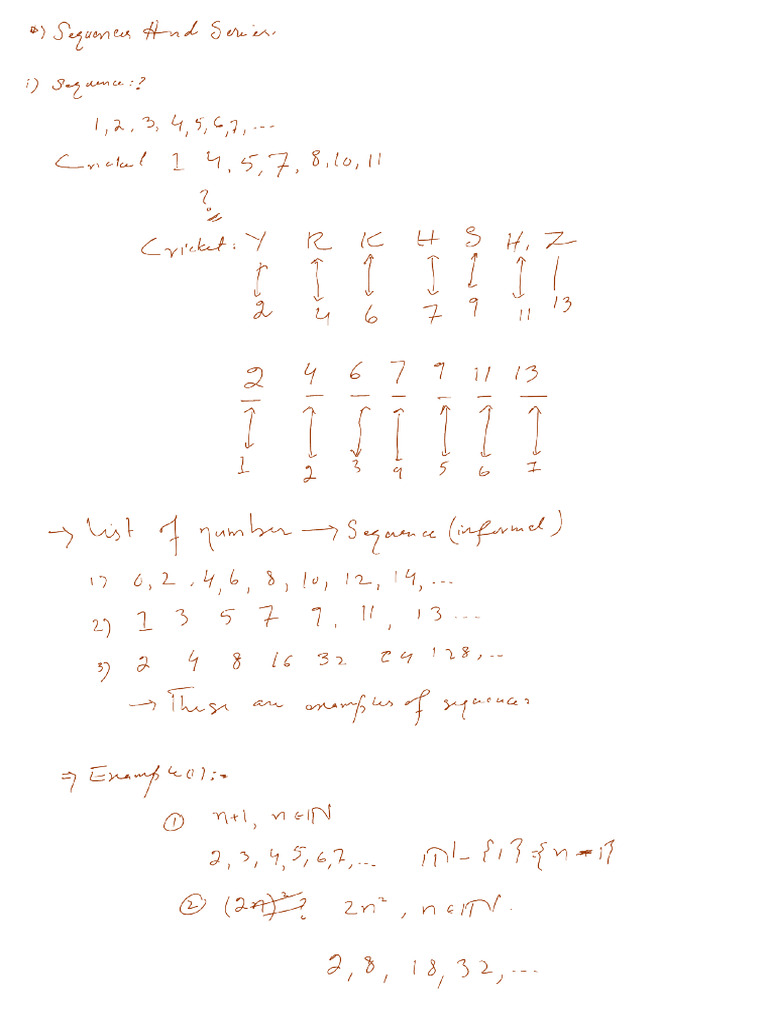 *) Sequences And Series.
i) Sequence:?
1, 2, 3, 4, 5, 6, 7, ...
Cricket 1 4, 5, 7, 8, 10, 11
?
Cricket: Y R K H S H, Z
2 4 6 7 9 11 13
2 4 6 7 9 11 13
1 2 3 4 5 6 7
→ List of number → Sequence (informal)
1) 0, 2, 4, 6, 8, 10, 12, 14, ...
2) 1 3 5 7 9, 11, 13 ...
3) 2 4 8 16 32 64 128, ...
→ These are examples of sequences
⇒ Example(1):-
① n+1, n∈ℕ
2, 3, 4, 5, 6, 7, ... ℕ - {1} =
② (2n)² ? 2n², n∈ℕ.
2, 8, 18, 32, ...